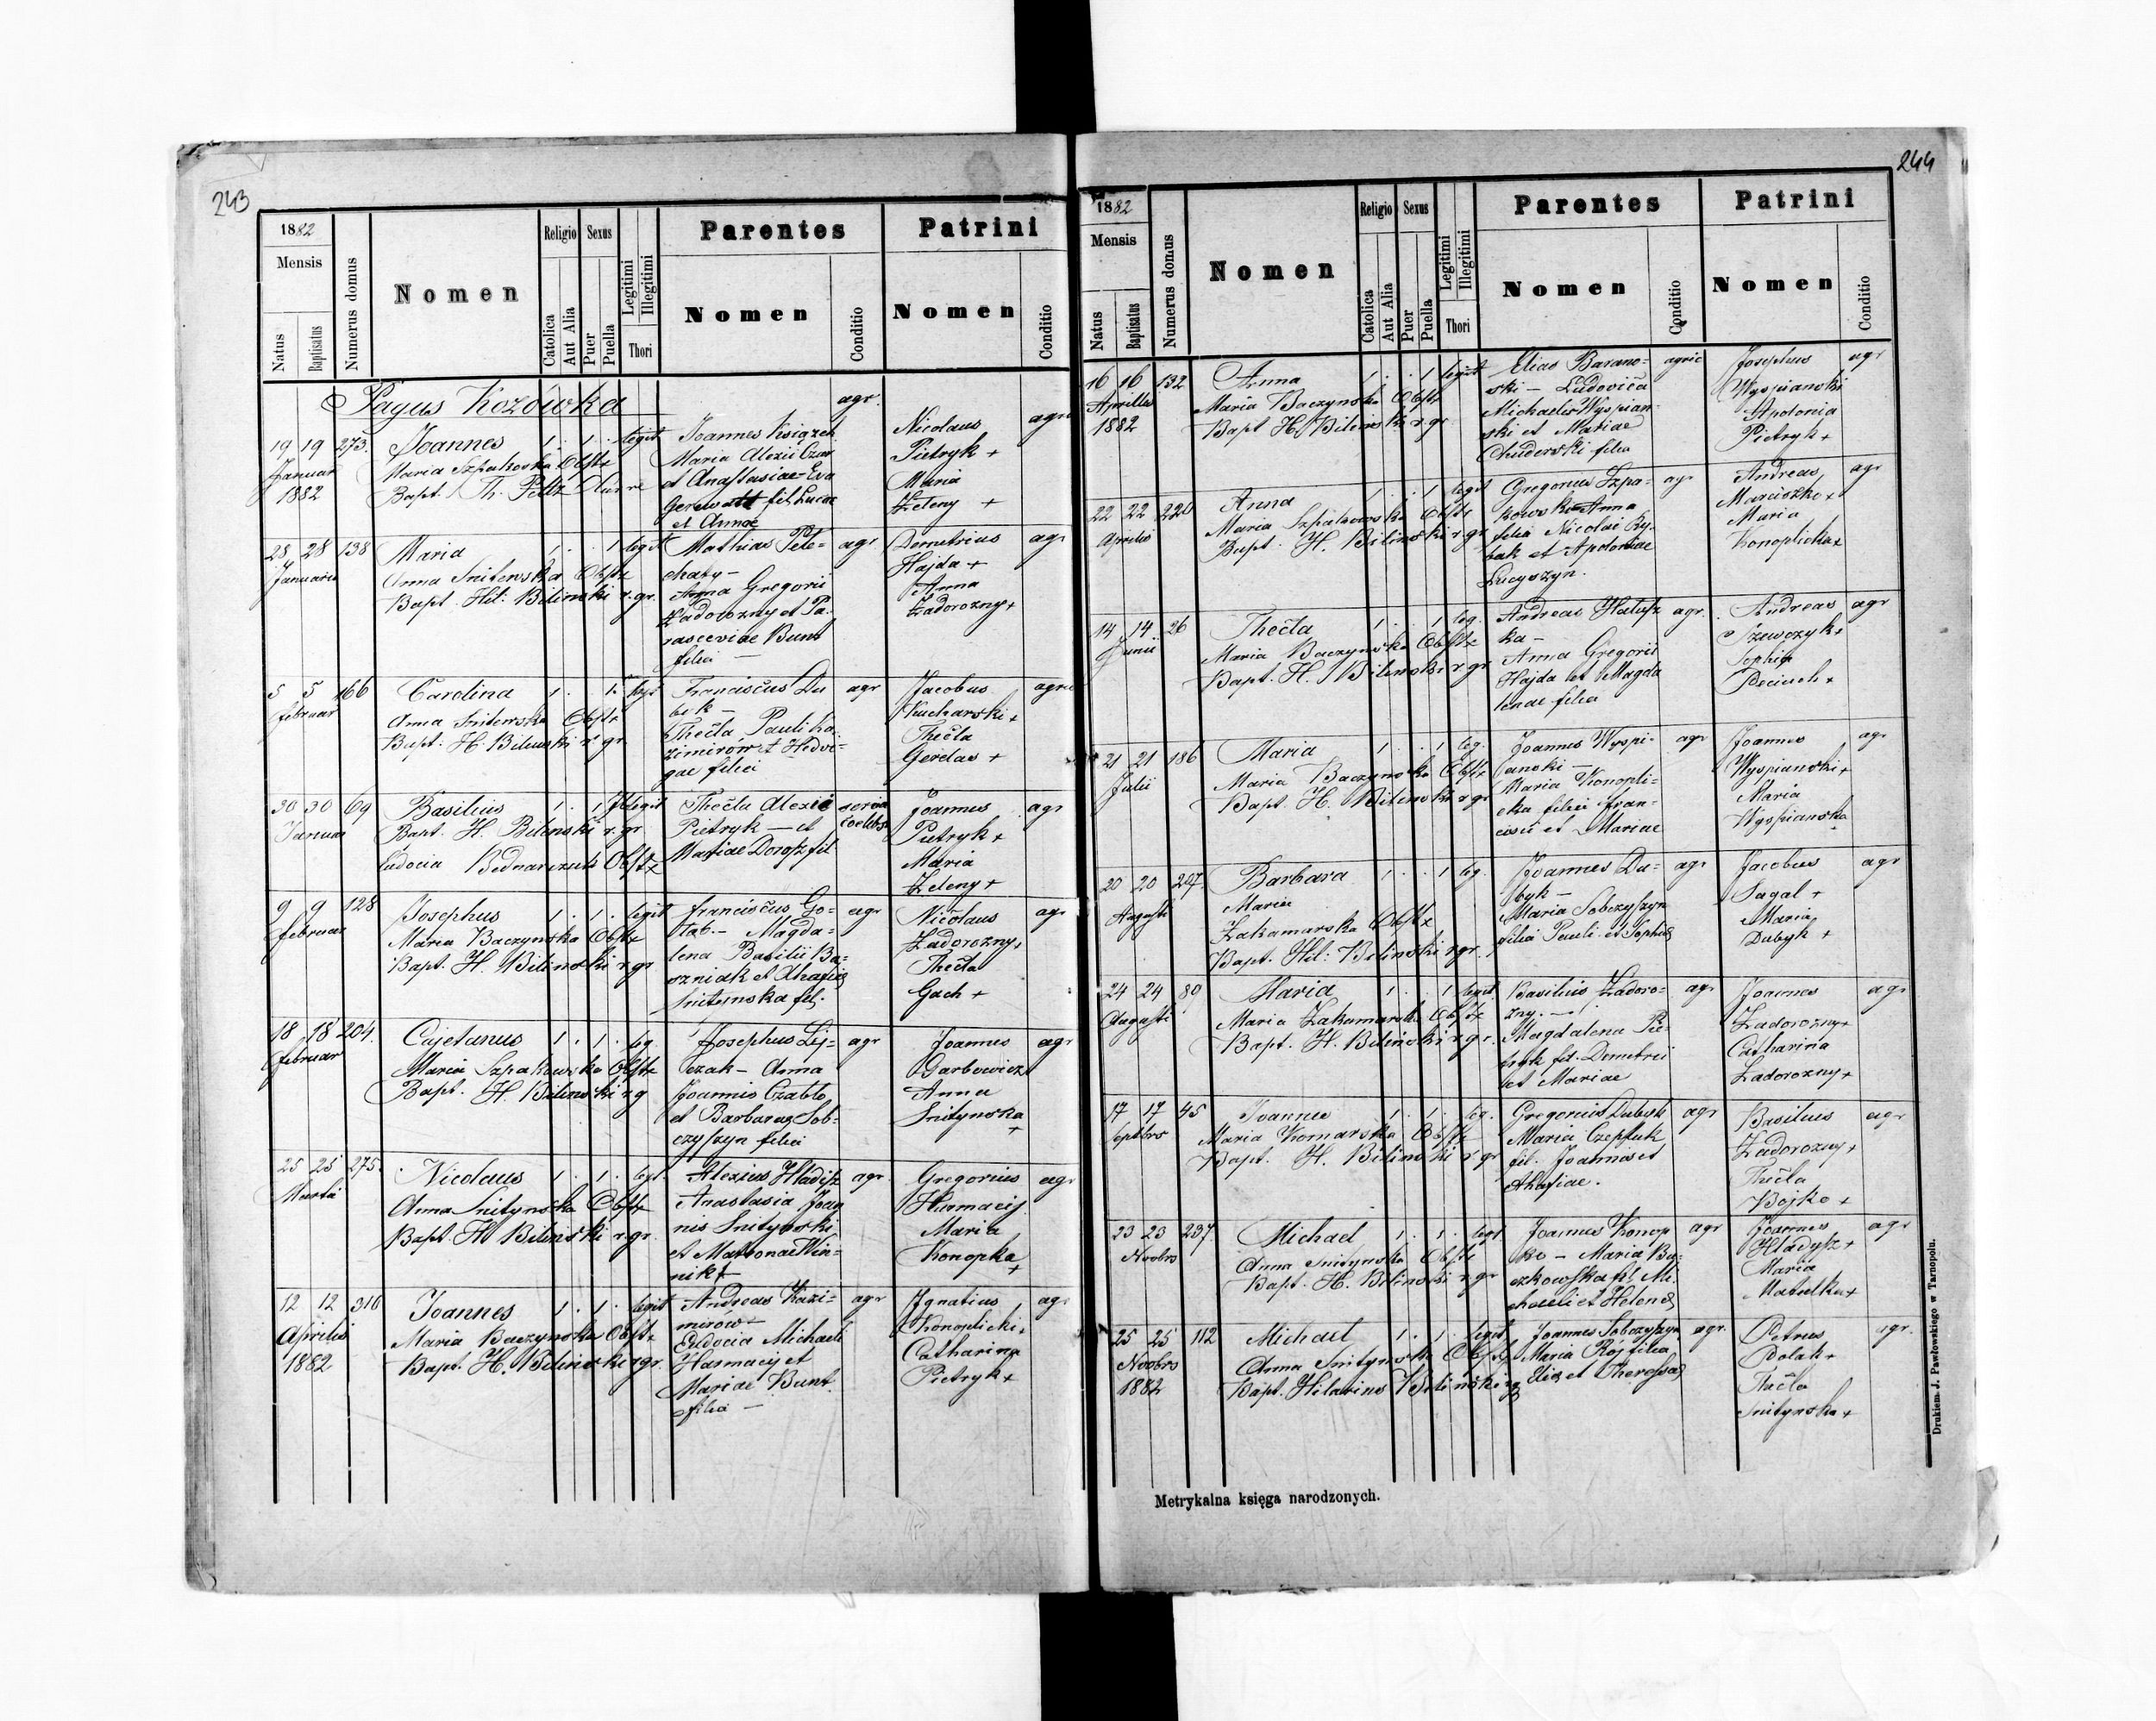 243
1882
Mensis
Natus
Baptisatus
Numerus domus
Nomen
Religio
Catolica
Aut Alia
Sexus
Puer
Puella
Legitimi
Illegitimi
Thori
Parentes
Nomen
Conditio
Patrini
Nomen
Conditio
Pagus Kozówka
19 19 273. Joannes 1 . 1 . legit
Januar Maria Szpakowska Obstx
1882 Bapt. Th.
Joannes Książek agr.
Maria Alexii Czar
et Anastasiae Eva
fil. Lucae
et Annae
Nicolaus agr
Pietryk +
Maria
Zeleny +
28 28 138 Maria 1 . . 1 legit
Januarii Anna Snitewska Obstx
Bapt. Hil: Bilinski r. gr.
Mathias Pele= agr
chaty –
Anna Gregorii
Zadorozny et Pa
rasceviae Bunt
filia –
Demetrius agr
Hajda +
Anna
Zadorozny +
5 5 166 Carolina 1 . . 1 legt
Februar Anna Snitewska Obstx
Bapt. H. Bilinski r gr
Franciscus Du agr
bik –
Thecla Pauli Ka
zimirów et Hedvi=
gae filia
Jacobus agr
Kucharski +
Thecla
Gerdas +
30 30 69 Basilius 1 . 1 Illegit
Januar Bapt. H. Bilinski r. gr.
Eudocia Bednarczuk Obstx
Thecla Alexii
Pietryk – et
Mariae Dorosz fil
Joannes agr
Pietryk +
Maria
Zeleny +
9 9 128 Josephus 1 . 1 . legit
Februar Maria Baczynska Obstx
Bapt. H. Bilinski r gr
Franciscus Go= agr
łab. – Magda=
lena Basilii Ba=
et Ahafiae
Snitynska fil.
Nicolaus agr
Zadorozny +
Thecla
Gach +
18 18 204. Cajetanus 1 . 1 . leg
Februar Maria Szpakowska Obstx
Bapt. H. Bilinski r g
Josephus Lej= agr
zak – Anna
Joannis Czabło
et Barbarae Sob=
czyszyn filia
Joannes agr
Garbowicz
Anna
Snitynska
+
25 25 275. Nicolaus 1 . 1 . legt.
Martii Anna Snitynska Obstx
Bapt. H. Bilinski r gr.
Alexius Hładisz agr
Anastasia Joan
nis Snitynski
et Matronae Win=
nik +
Gregorius agr
Maria
Konopka
+
12 12 316 Joannes 1 . 1 . legit
Aprilis Maria Baczynska Obstx
1882 Bapt. H. Bilinski r gr.
Andreas Kazi= agr
mirów –
Eudocia Michaeli
Harmacij et
Mariae Bunt
filia –
Ignatius agr
Konoplicki +
Catharina
Pietryk +
244
1882
Mensis
Natus
Baptisatus
Numerus domus
Nomen
Religio
Catolica
Aut Alia
Sexus
Puer
Puella
Legitimi
Illegitimi
Thori
Parentes
Nomen
Conditio
Patrini
Nomen
Conditio
16 16 132 Anna 1 . . 1 legit
Aprilis Maria Baczynska Obstx
1882 Bapt. H. Bilinski r gr
Elias Barano= agric
ski – Ludovica
Michaelis Wyspian
ski et Mariae
Chuderski filia
Josephus agr
Wyspianski
Apolonia
Pietryk +
22 22 220 Anna 1 . . 1 legit
Aprilis Maria Szpakowska Obstx
Bapt. H. Bilinski r gr
Gregorius Szpa= agr
kowski Anna
filia Nicolai Ry=
bak et Apoloniae
Lucyszyn.
Andreas agr
Marciszko +
Maria
Konoplicka +
14 14 26 Thecla 1 . . 1 leg.
Junii Maria Baczynska Obstx
Bapt. H. Bilinski r gr
Andreas Hałusz agr.
ka –
Anna Gregorii
Hajda et Magda
lenae filia
Andreas agr
Szewczyk +
Sophia
Deciuch +
21 21 186 Maria 1 . . 1 leg.
Julii Maria Baczynska Obstx
Bapt. H. Bilinski r gr
Joannes Wyspi= agr
anski –
Maria Konopli=
cka filia Fran=
cisci et Mariae
Joannes agr
Wyspianski +
Maria
Wyspianska
+
20 20 207. Barbara 1 . . 1 leg.
Augusti Maria
Zakamarska Obstx
Bapt. Hil: Bilinski r gr.
Joannes Du= agr
byk –
Maria Sobczyszyn
filia Pauli et Sophiae
Jacobus agr
Sagal +
Maria
Dubyk +
24 24 80 Maria 1 . . 1 legit.
Augusti Maria Zakamarska Obstx
Bapt. H. Bilinski r gr.
Basilius Zadoro= agr
zny. –
Magdalena Pie
tryk fil. Demetrii
et Mariae
Joannes agr
Zadorozny +
Catharina
Zadorozny +
17 17 45 Joannes 1 . 1 . leg.
Septbris Maria Komarska Obstx
Bapt. H. Bilinski r gr
Gregorius Dubyk agr
Maria Czepluk
fil. Joannes et
Ahafiae.
Basilius agr
Zadorozny +
Thecla
Bojko +
23 23 237 Michael 1 . 1 . legt
Novbris Anna Snitynska Obstx
Bapt. H. Bilinski r gr
Joannes Konop agr
ka – Maria Bu=
czkowska fil Mi=
chaeli et Helenae
Joannes agr
Hładysz +
Maria
Matulka +
25 25 112 Michael 1 . 1 . legit
Novbris Anna Snitynska Obstx
1882 Bapt. Hilarius Bilinski r g
Joannes Sobczyszyn agr.
Maria Rój filia
Eliae et Theresiae
Petrus agr.
Polak +
Thecla
Snitynska +
Metrykalna księga narodzonych.
Drukiem J. Pawłowskiego w Tarnopolu.